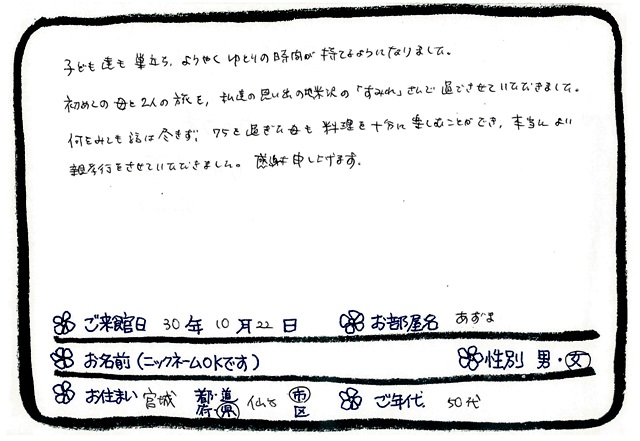 子ども達も巣立ち、ようやくゆとりの時間が持てるようになりました。
初めての母と2人の旅を、私達の思い出の地米沢の「すみれ」さんで過ごさせていただきました。
何をみても話は尽きず、75を過ぎた母も料理を十分に楽しむことができ、本当によい
親孝行をさせていただきました。感謝申し上げます。
ご来館日 30年10月22日 お部屋名 あずま
お名前(ニックネームOKです) 性別 男・女
お住まい 宮城 都・道・府・県 仙台 市 区 ご年代 50代